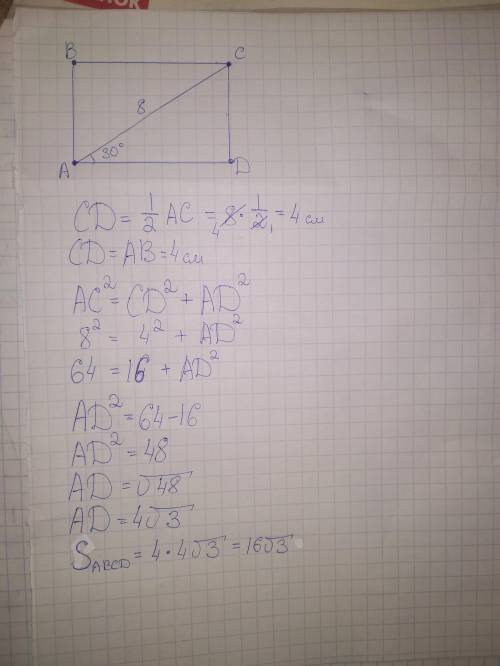 B C
8
30°
A D
CD = 1/2 AC = 8 · 1/2 = 4 см
4 1
CD = AB = 4 см
AC² = CD² + AD²
8² = 4² + AD²
64 = 16 + AD²
AD² = 64 - 16
AD² = 48
AD = √48
AD = 4√3
S ABCD = 4 · 4√3 = 16√3